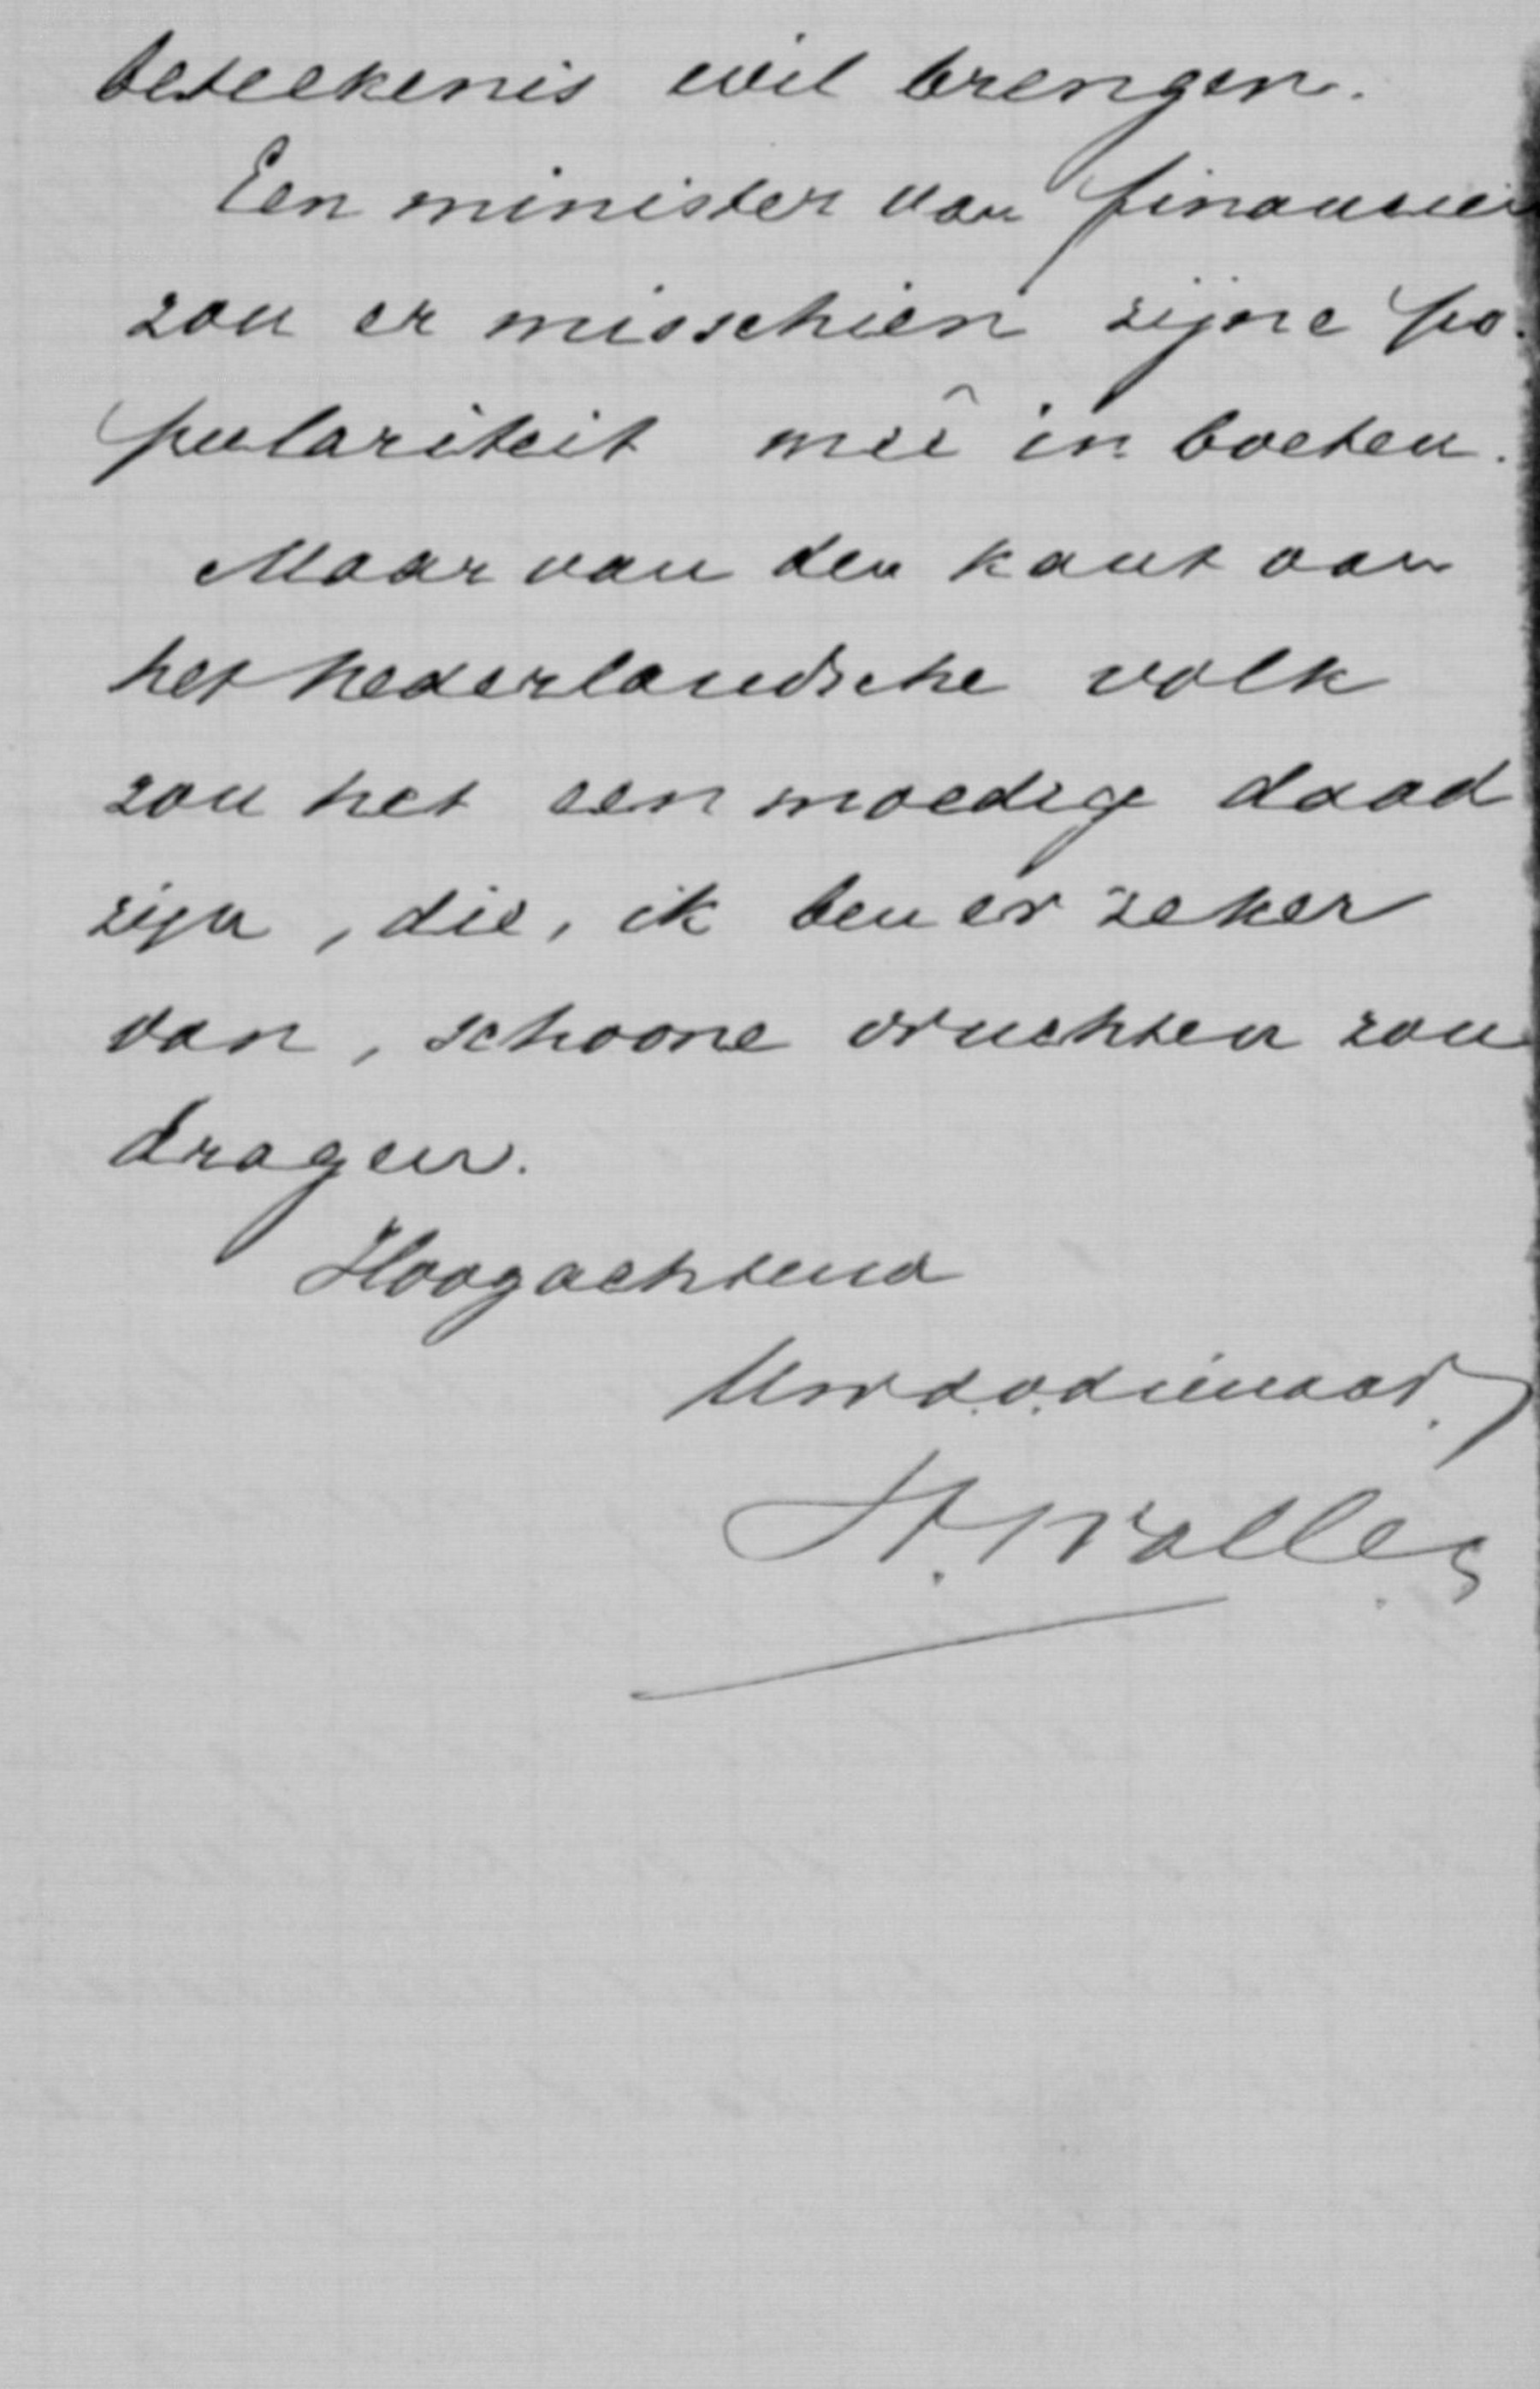 beteekenis wil brengen.
Een minister van financiën
zou er misschien zijne po-
pulariteit meê in boeten.
Maar van den kant van
het Nederlandsche volk
zou het een moedige daad
zijn, die, ik ben er zeker
van, schoone vruchten zou
dragen.
Hoogachtend
Uw d.v. dienaar
H.